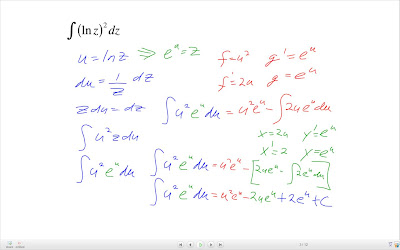 ∫(ln z)² dz
u = ln z ⇒ eᵘ = z
du = 1/z dz
z du = dz
∫u² z du
∫u² eᵘ du
f = u² g' = eᵘ
f' = 2u g = eᵘ
∫u² eᵘ du = u² eᵘ - ∫2u eᵘ du
x = 2u y' = eᵘ
x' = 2 y = eᵘ
∫u² eᵘ du = u² eᵘ - [2u eᵘ - ∫2 eᵘ du]
∫u² eᵘ du = u² eᵘ - 2u eᵘ + 2eᵘ + C